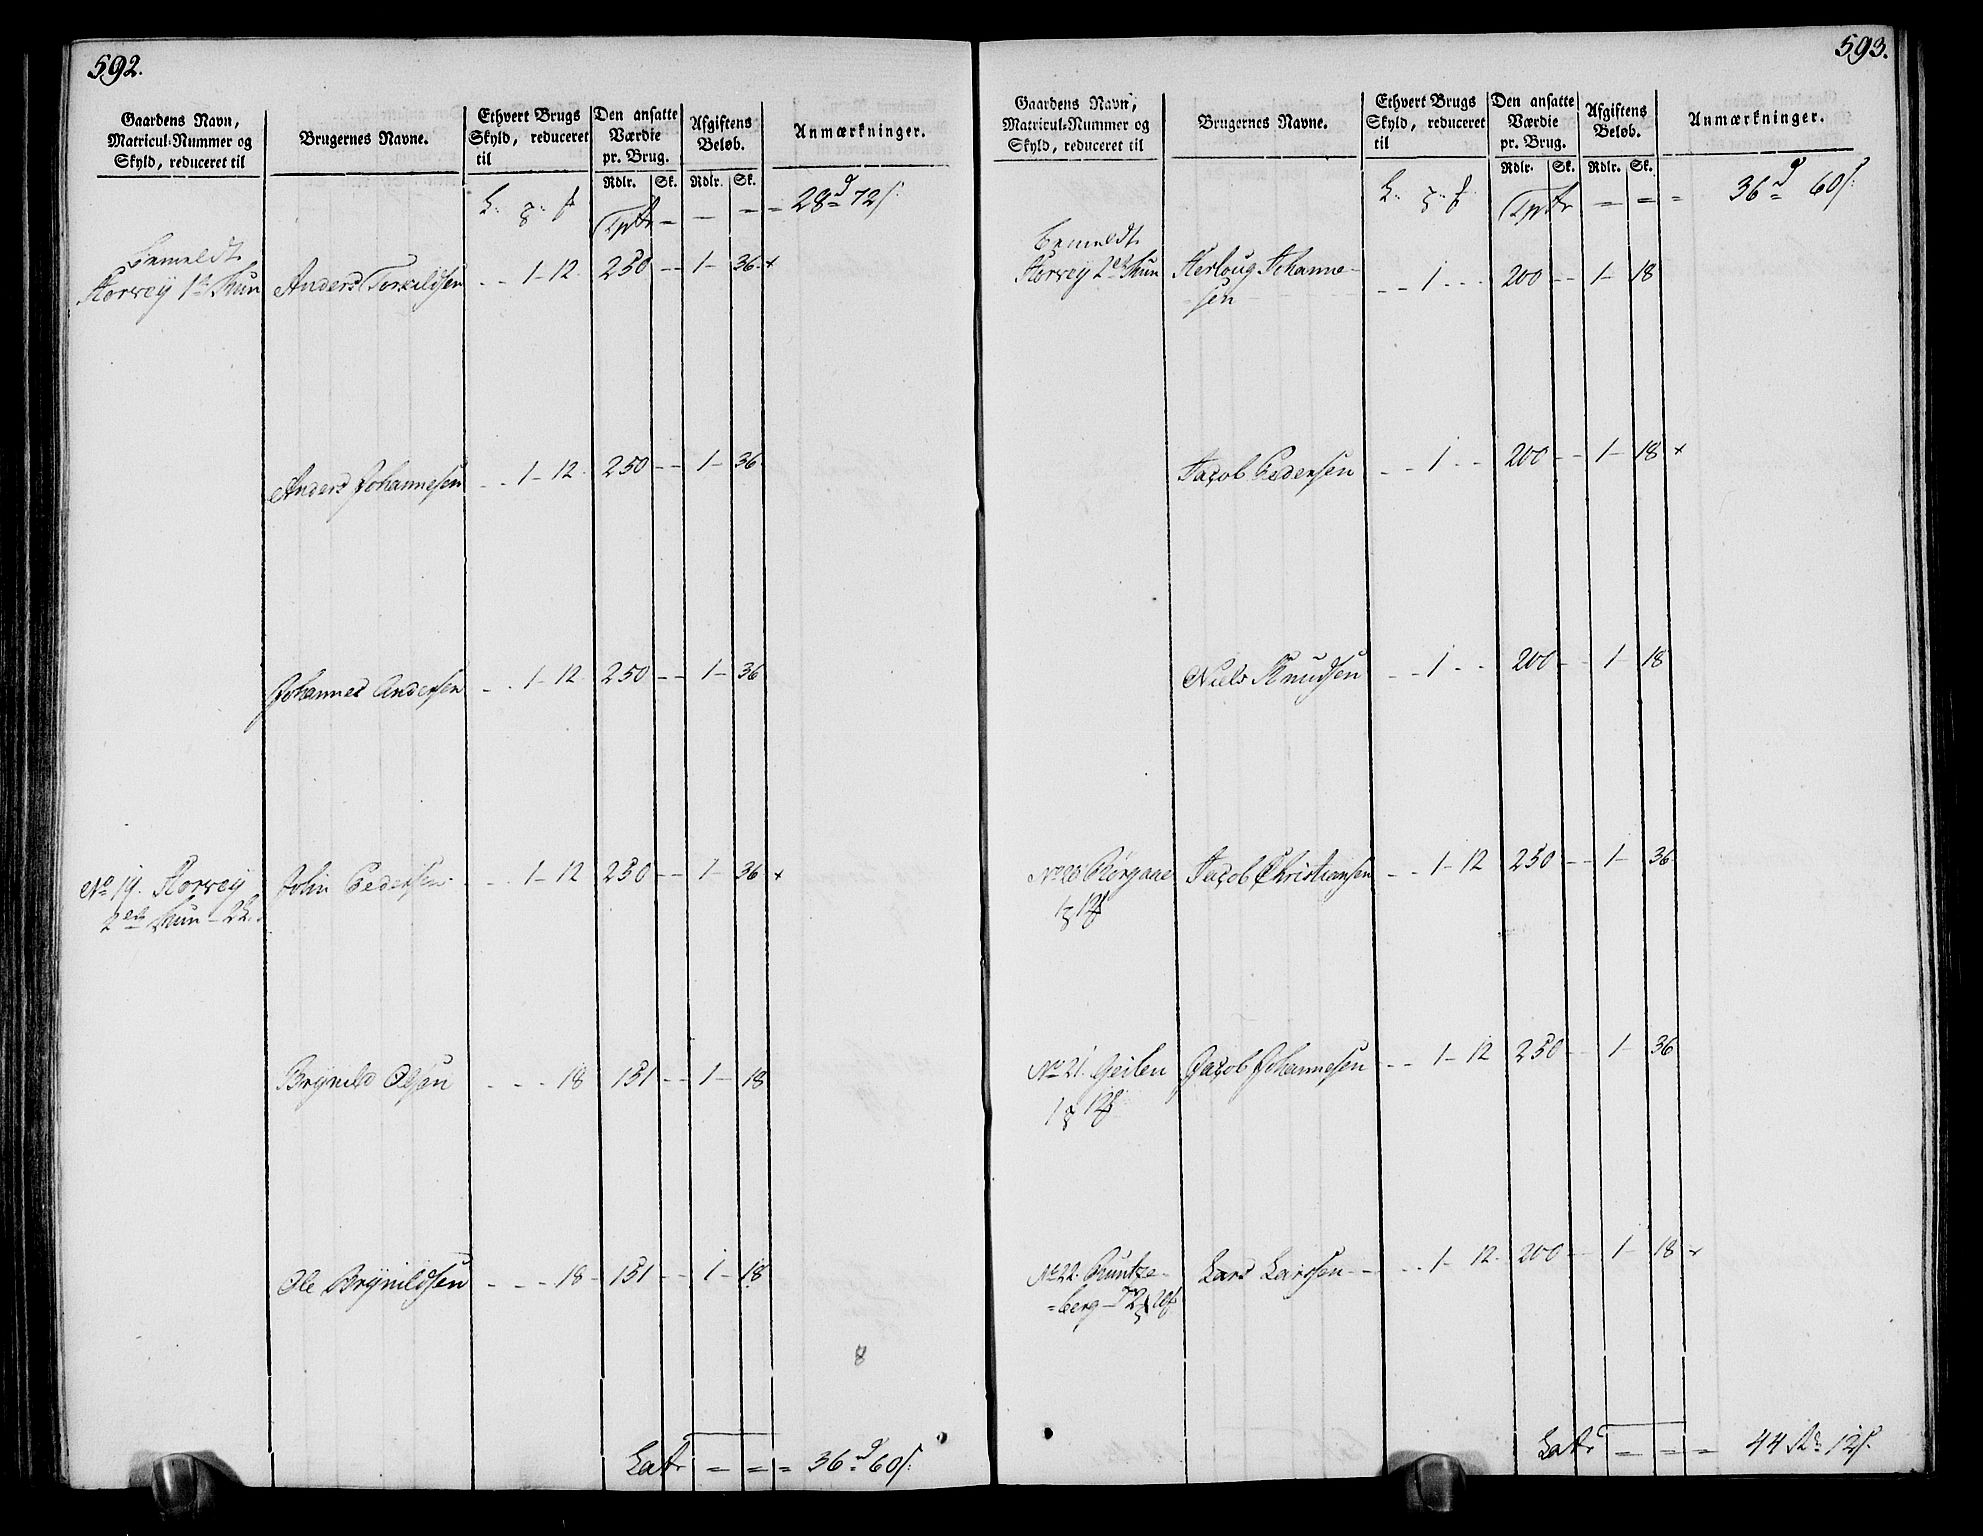 592.
Gaardens Navn,
Matricul-Nummer og
Skyld, reduceret til
Brugernes Navne.
Ethvert Brugs
Skyld, reduceret
til
Den ansatte
Værdie
pr. Brug.
Rdlr. Sk.
Afgiftens
Beløb.
Rdlr. Sk.
Anmærkninger.
28 d 72 s
Bemeldt
Anders Torkildsen - - 1 - 12. 250 - - 1 - 36 - +
Anders Johannesen - - 1 - 12. 250 - - 1 - 36.
Johannes Andersen - - 1 - 12. 250 - - 1 - 36
No 19. John Pedersen - - 1 - 12 250 - - 1 - 36 +
Brynild Olsen - - - 18 151 - - 1 - 18
Ole Brynildsen - - - 18 - 151 - - 1 - 18
8
Lat. = = = 36 d 60 s.
593.
Gaardens Navn,
Matricul-Nummer og
Skyld, reduceret til
Brugernes Navne.
Ethvert Brugs
Skyld, reduceret
til
Den ansatte
Værdie
pr. Brug.
Rdlr. Sk.
Afgiftens
Beløb.
Rdlr. Sk.
Anmærkninger.
= = = 36 d 60 s.
Bemeldt
Herloug Johanne-
sen - - 1 - - 200 - - 1 - 18
Jacob Pedersen - - 1 - - 200 - - 1 - 18 +
Niels Knudsen - - 1 - - 200 - - 1 - 18
No 20 Jacob Christiansen - - 1 - 12 250 - - 1 - 36
No 21. Geilen Jacob Johannesen - - 1 - 12 250 - - 1 - 36
No 22. Lars Larssen - - - 1 - 12. 200 - - 1 - 18 +
Lat. = = = 44 Rd 12 s.